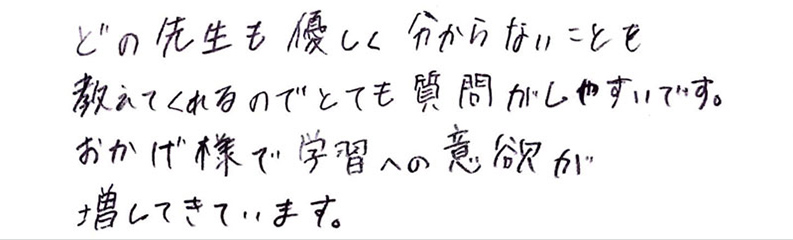 どの先生も優しく分からないことも
教えてくれるのでとても質問がしやすいです。
おかげ様で学習への意欲が
増してきています。